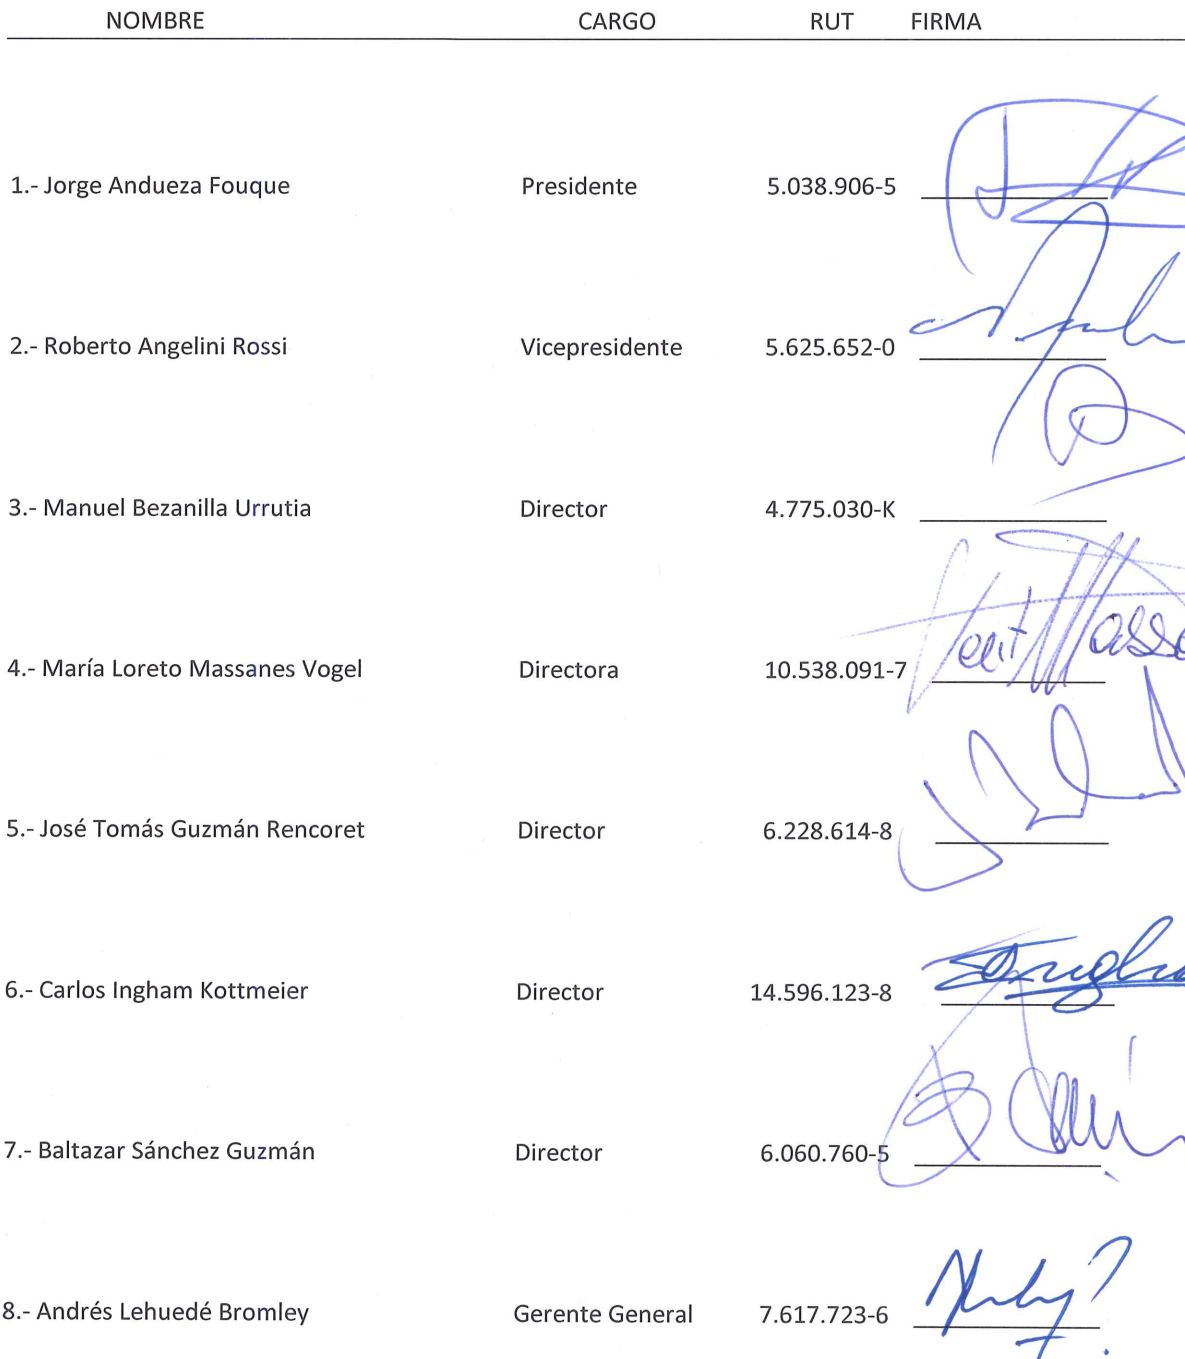 NOMBRE CARGO RUT FIRMA
1.- Jorge Andueza Fouque Presidente 5.038.906-5
2.- Roberto Angelini Rossi Vicepresidente 5.625.652-0
3.- Manuel Bezanilla Urrutia Director 4.775.030-K
4.- María Loreto Massanes Vogel Directora 10.538.091-7
5.- José Tomás Guzmán Rencoret Director 6.228.614-8
6.- Carlos Ingham Kottmeier Director 14.596.123-8
7.- Baltazar Sánchez Guzmán Director 6.060.760-5
8.- Andrés Lehuedé Bromley Gerente General 7.617.723-6